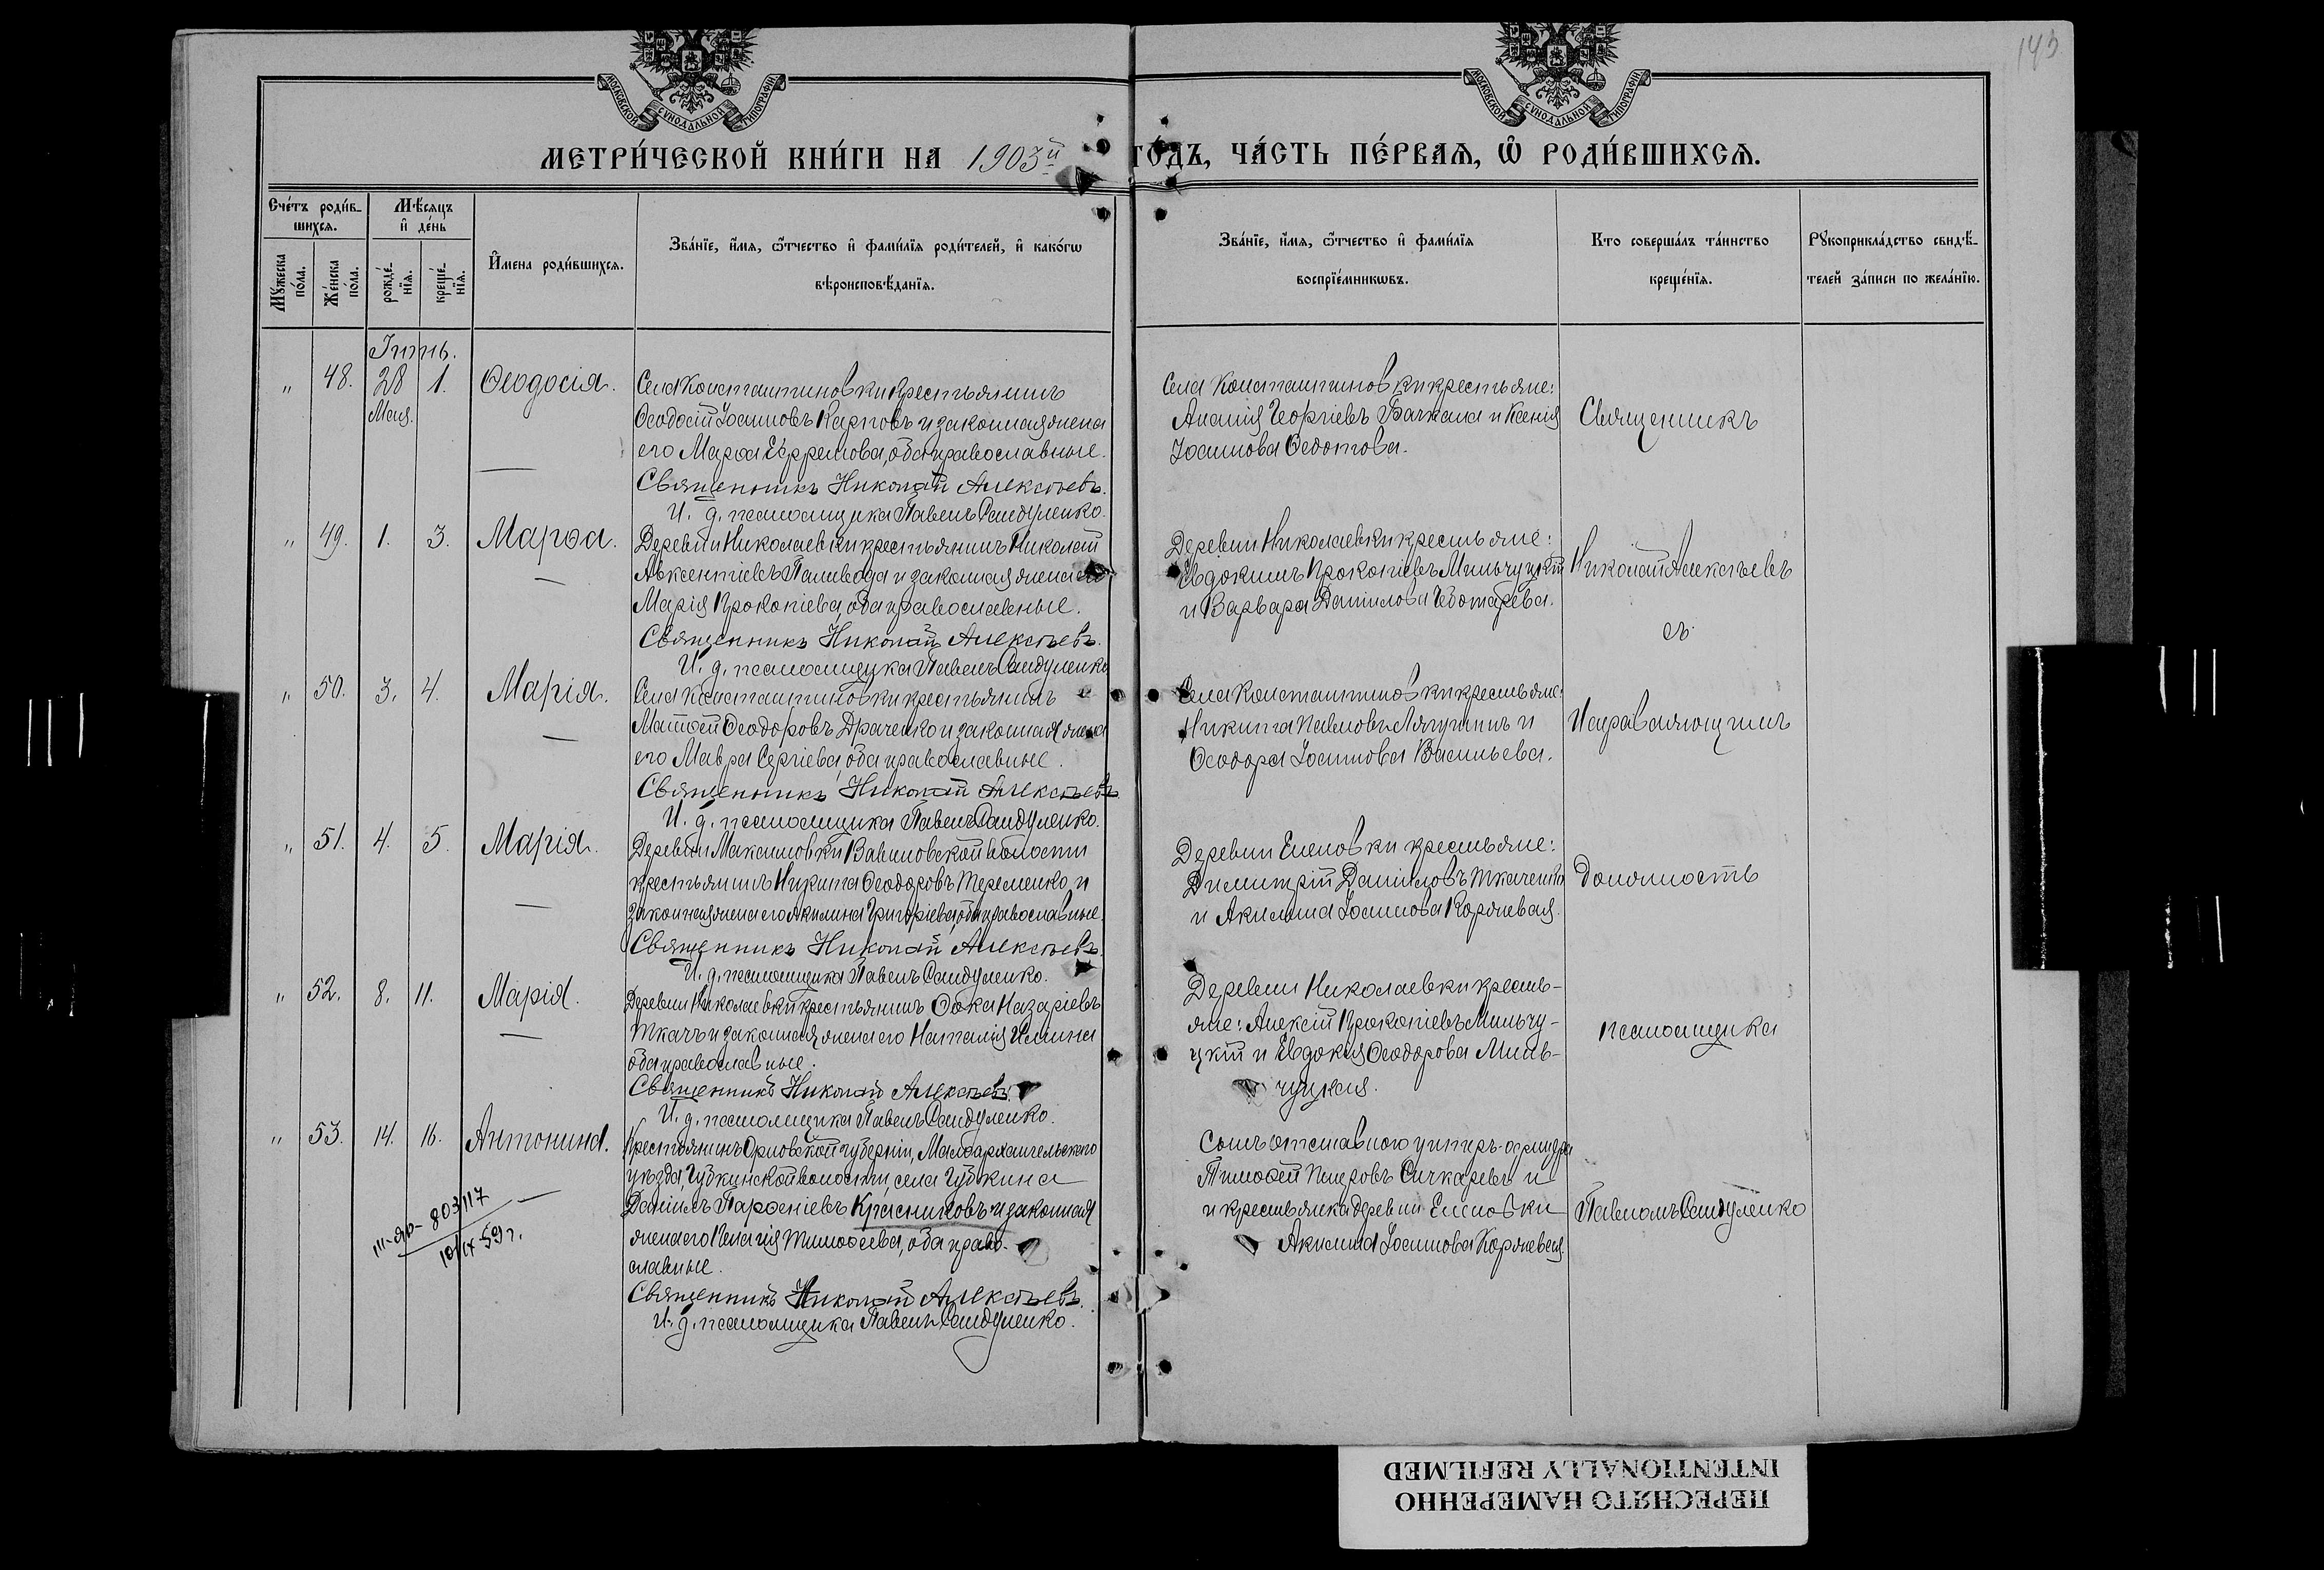 143
МОСКОВСКОЙ СѴНОДАЛЬНОЙ ТИПОГРАФІИ
МОСКОВСКОЙ СѴНОДАЛЬНОЙ ТИПОГРАФІИ
МЕТРИ́ЧЕСКОЙ КНИ́ГИ НА 1903й ГО́ДЪ, ЧА́СТЬ ПЕ́РВАѦ, Ѡ҆ РОДИ́ВШИХСѦ.
Сче́тъ роди́в-
шихсѧ.
Мꙋ́жеска
по́ла.
Же́нска
по́ла.
Мѣ́сѧцъ
и҆ де́нь
рожде́-
нїѧ.
креще́-
нїѧ.
И҆мена̀ роди́вшихсѧ.
Зва́нїе, и҆́мѧ, ѻ҆́тчество и҆ фами́лїѧ роди́телей, и҆ како́гѡ
вѣроисповѣ́данїѧ.
Зва́нїе, и҆́мѧ, ѻ҆́тчество и҆ фами́лїѧ
воспрїе́мникѡвъ.
Кто̀ соверша́лъ та́инство
креще́нїѧ.
Рꙋкоприкла́дство свидѣ́-
телей за́писи по жела́нїю.
Іюнь.
" 48. 28 1. Ѳеодосія.
Мая.
Села Константиновки крестьянинъ
Ѳеодосій Іоанновъ Карповъ и законная жена
его Марѳа Ефремова, оба православные.
Священникъ Николай Алексѣевъ.
И. д. псаломщика Павелъ Сандуленко.
Села Константиновки крестьяне:
Ананія Георгіевъ Бачкала и Ксенія
Іоаннова Ѳедотова.
Священникъ
" 49. 1. 3. Марѳа.
Деревни Николаевки крестьянинъ Николай
Авксентіевъ Паливода и законная жена его
Марія Прокопіева, оба православные.
Священникъ Николай Алексѣевъ.
И. д. псаломщика Павелъ Сандуленко
Деревни Николаевки крестьяне:
Евдокимъ Прокопіевъ Мильчуцкій
и Варвара Даніилова Чеботарева.
Николай Алексѣевъ
съ
" 50. 3. 4. Марія.
Села Константиновки крестьянинъ
Матѳей Ѳеодоровъ Драченко и законная жена
его Мавра Сергіева, оба православные.
Священникъ Николай Алексѣевъ
И. д. псаломщика Павелъ Сандуленко.
Села Константиновки крестьяне:
Никита Павловъ Лягушинъ и
Ѳеодора Іоаннова Васильева.
Исправляющимъ
" 51. 4. 5. Марія.
Деревни Максимовки Вавиловской волости
крестьянинъ Никита Ѳеодоровъ Теременко и
законная жена его Акилина Григоріева, оба православные.
Священникъ Николай Алексѣевъ
И. д. псаломщика Павелъ Сандуленко.
Деревни Еленовки крестьяне:
Димитрій Даніиловъ Ткаченко
и Акилина Іоаннова Коржевая.
должность
" 52. 8. 11. Марія.
Деревни Николаевки крестьянинъ Ѳока Назаріевъ
Ткачъ и законная жена его Наталія Илиина
оба православные.
Священникъ Николай Алексѣевъ.
И. д. псаломщика Павелъ Сандуленко.
Деревни Николаевки кресть-
яне: Алексій Прокопіевъ Мильчу-
цкій и Евдокія Ѳеодорова Миль-
чуцкая.
псаломщика
" 53. 14. 16. Антонина.
Крестьянинъ Орловской губерніи, Малоархангельского
уѣзда, Губкинской волости, села Губкина
Даніилъ Парѳеніевъ Красниковъ и законная
жена его Пелагія Тимоѳеева, оба право-
славные.
Священникъ Николай Алексѣевъ.
И. д. псаломщика Павелъ Сандуленко.
III-ЯР- 803117
10/IX-59 г.
Сынъ отставного унтеръ-офицера
Тимоѳей Петровъ Сичкаревъ и
и крестьянка деревни Еленовки
Акилина Іоаннова Коржевая.
Павломъ Сандуленко
ПЕРЕСНЯТО НАМЕРЕННО
INTENTIONALLY REFILMED